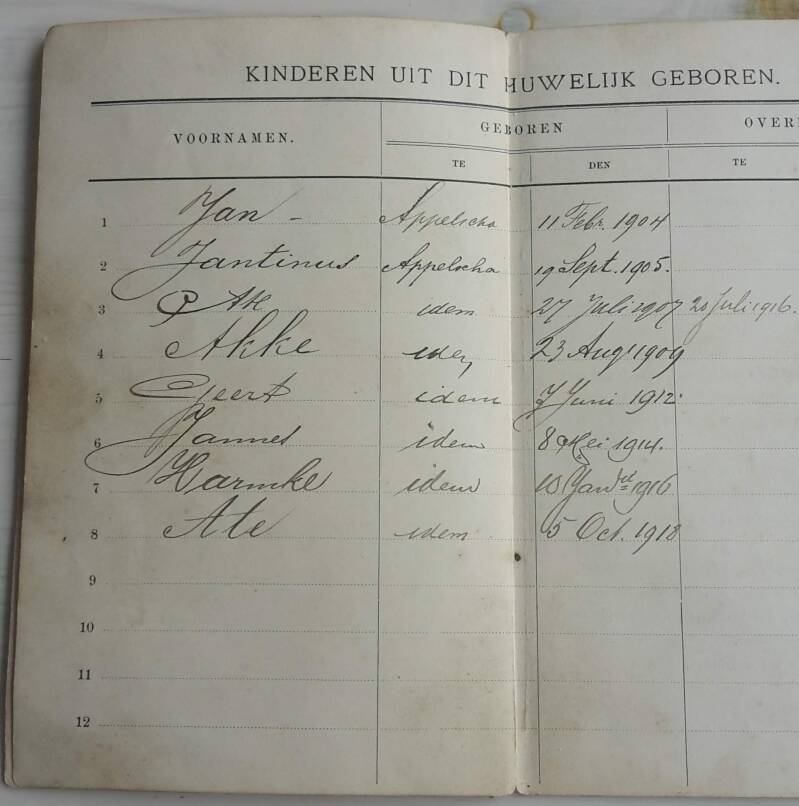 KINDEREN UIT DIT HUWELIJK GEBOREN.
VOORNAMEN. GEBOREN OVER
TE DEN TE
1 Jan - Appelscha 11 Febr. 1904
2 Jantinus Appelscha 19 Sept. 1905.
3 Ate idem 27 Juli 1907 20 Juli 1916.
4 Akke idem 23 Aug 1909
5 Geert idem 7 Juni 1912.
6 Jannes idem 8 Mei 1914.
7 Harmke idem 10 Jan 1916
8 Ate idem 5 Oct. 1918
9
10
11
12